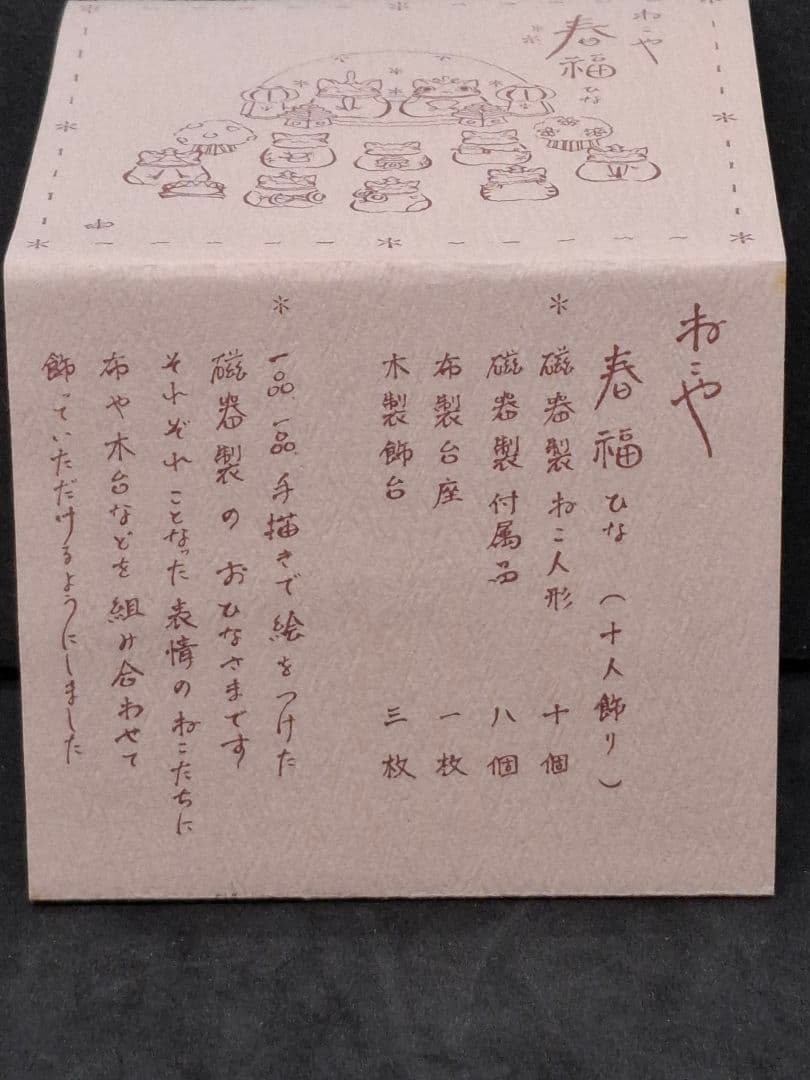 ねこや
春福
ひな
ねこや
春福ひな（十人飾り）
＊磁器製ねこ人形　十個
磁器製付属品　八個
布製台座　一枚
木製飾台　三枚
＊一品、一品、手描きで絵をつけた
磁器製のおひなさまです
それぞれことなった表情のねこたちに
布や木台などを組み合わせて
飾っていただけるようにしました